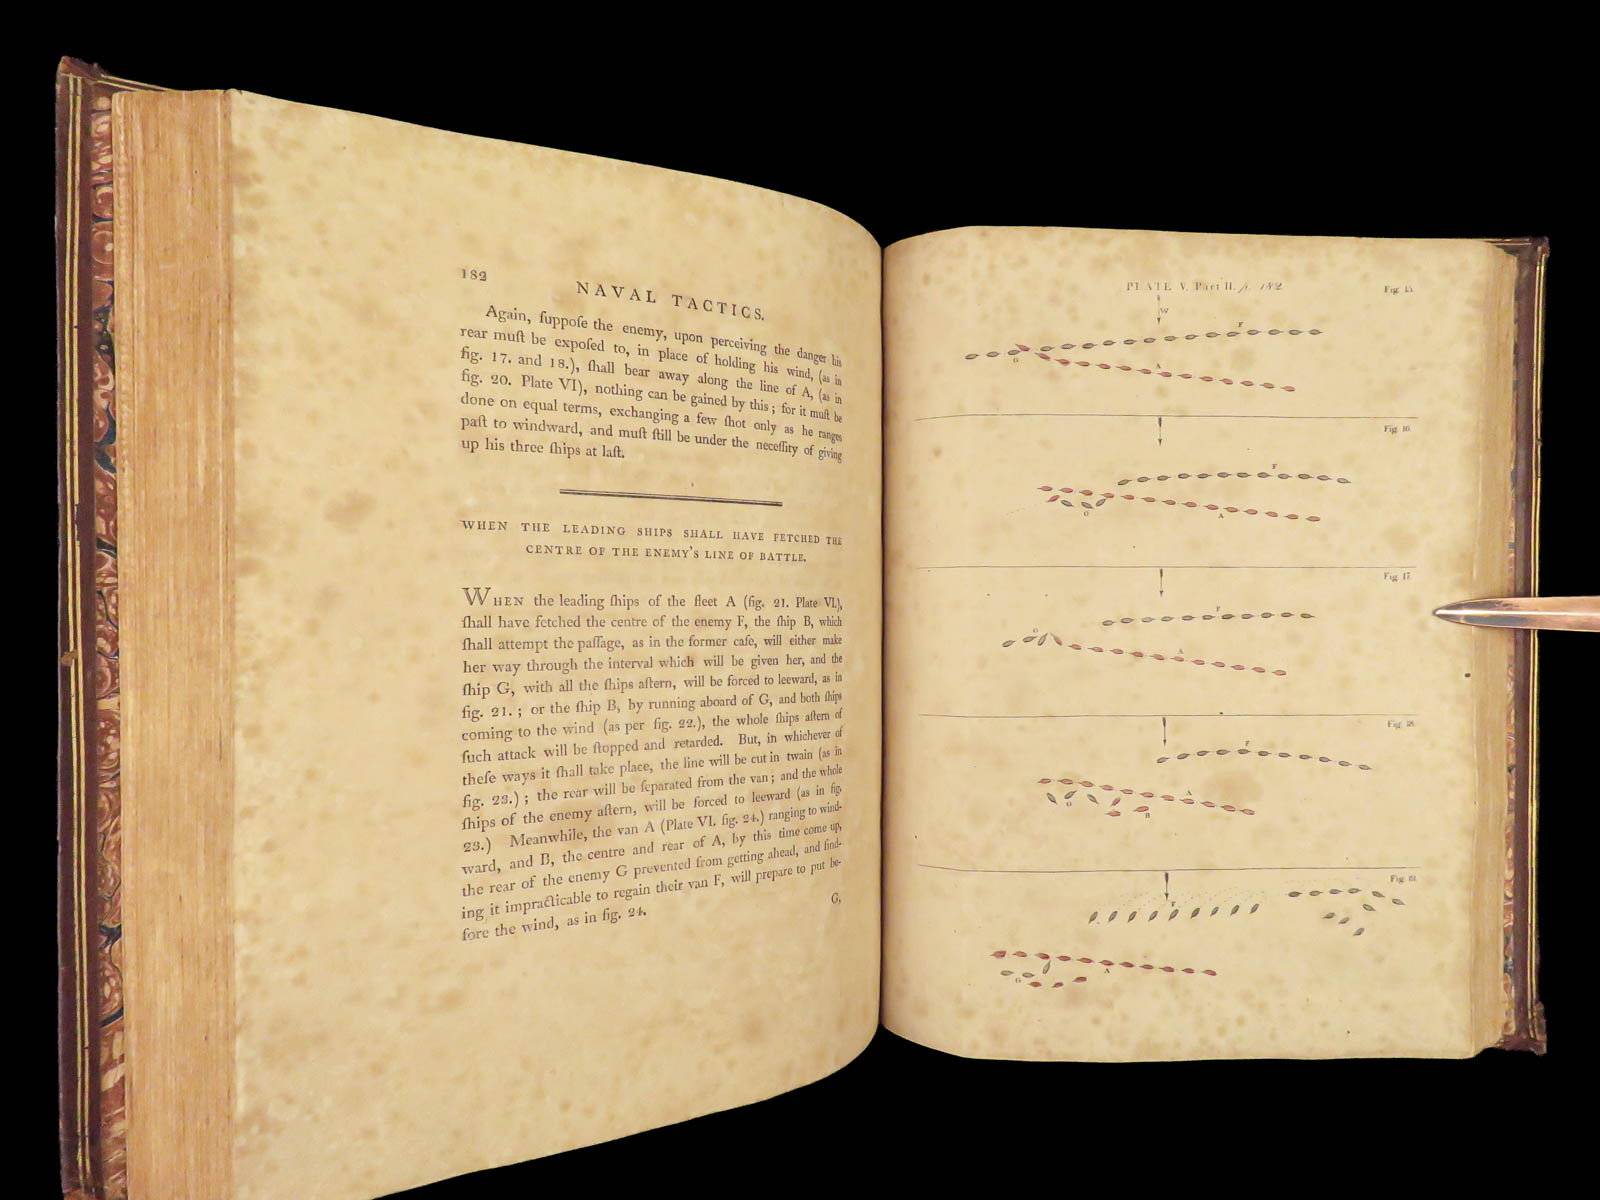 182
NAVAL TACTICS.
Again, ſuppoſe the enemy, upon perceiving the danger his
rear muſt be expoſed to, in place of holding his wind, (as in
fig. 17. and 18.), ſhall bear away along the line of A, (as in
fig. 20. Plate VI), nothing can be gained by this; for it muſt be
done on equal terms, exchanging a few ſhot only as he ranges
paſt to windward, and muſt ſtill be under the neceſſity of giving
up his three ſhips at laſt.
WHEN THE LEADING SHIPS SHALL HAVE FETCHED THE
CENTRE OF THE ENEMY'S LINE OF BATTLE.
WHEN the leading ſhips of the fleet A (fig. 21. Plate VI.),
ſhall have fetched the centre of the enemy F, the ſhip B, which
ſhall attempt the paſſage, as in the former caſe, will either make
her way through the interval which will be given her, and the
ſhip G, with all the ſhips aſtern, will be forced to leeward, as in
fig. 21.; or the ſhip B, by running aboard of G, and both ſhips
coming to the wind (as per fig. 22.), the whole ſhips aſtern of
ſuch attack will be ſtopped and retarded. But, in whichever of
theſe ways it ſhall take place, the line will be cut in twain (as in
fig. 23.); the rear will be ſeparated from the van; and the whole
ſhips of the enemy aſtern, will be forced to leeward (as in fig.
23.) Meanwhile, the van A (Plate VI. fig. 24.) ranging to wind-
ward, and B, the centre and rear of A, by this time come up,
the rear of the enemy G prevented from getting ahead, and find-
ing it impracticable to regain their van F, will prepare to put be-
fore the wind, as in fig. 24.
G,
PLATE V. Part II. p. 182
Fig. 15.
W
F
G
A
Fig. 16.
F
G
A
Fig. 17.
F
G
A
Fig. 18.
F
A
G
B
Fig. 19.
F
A
G